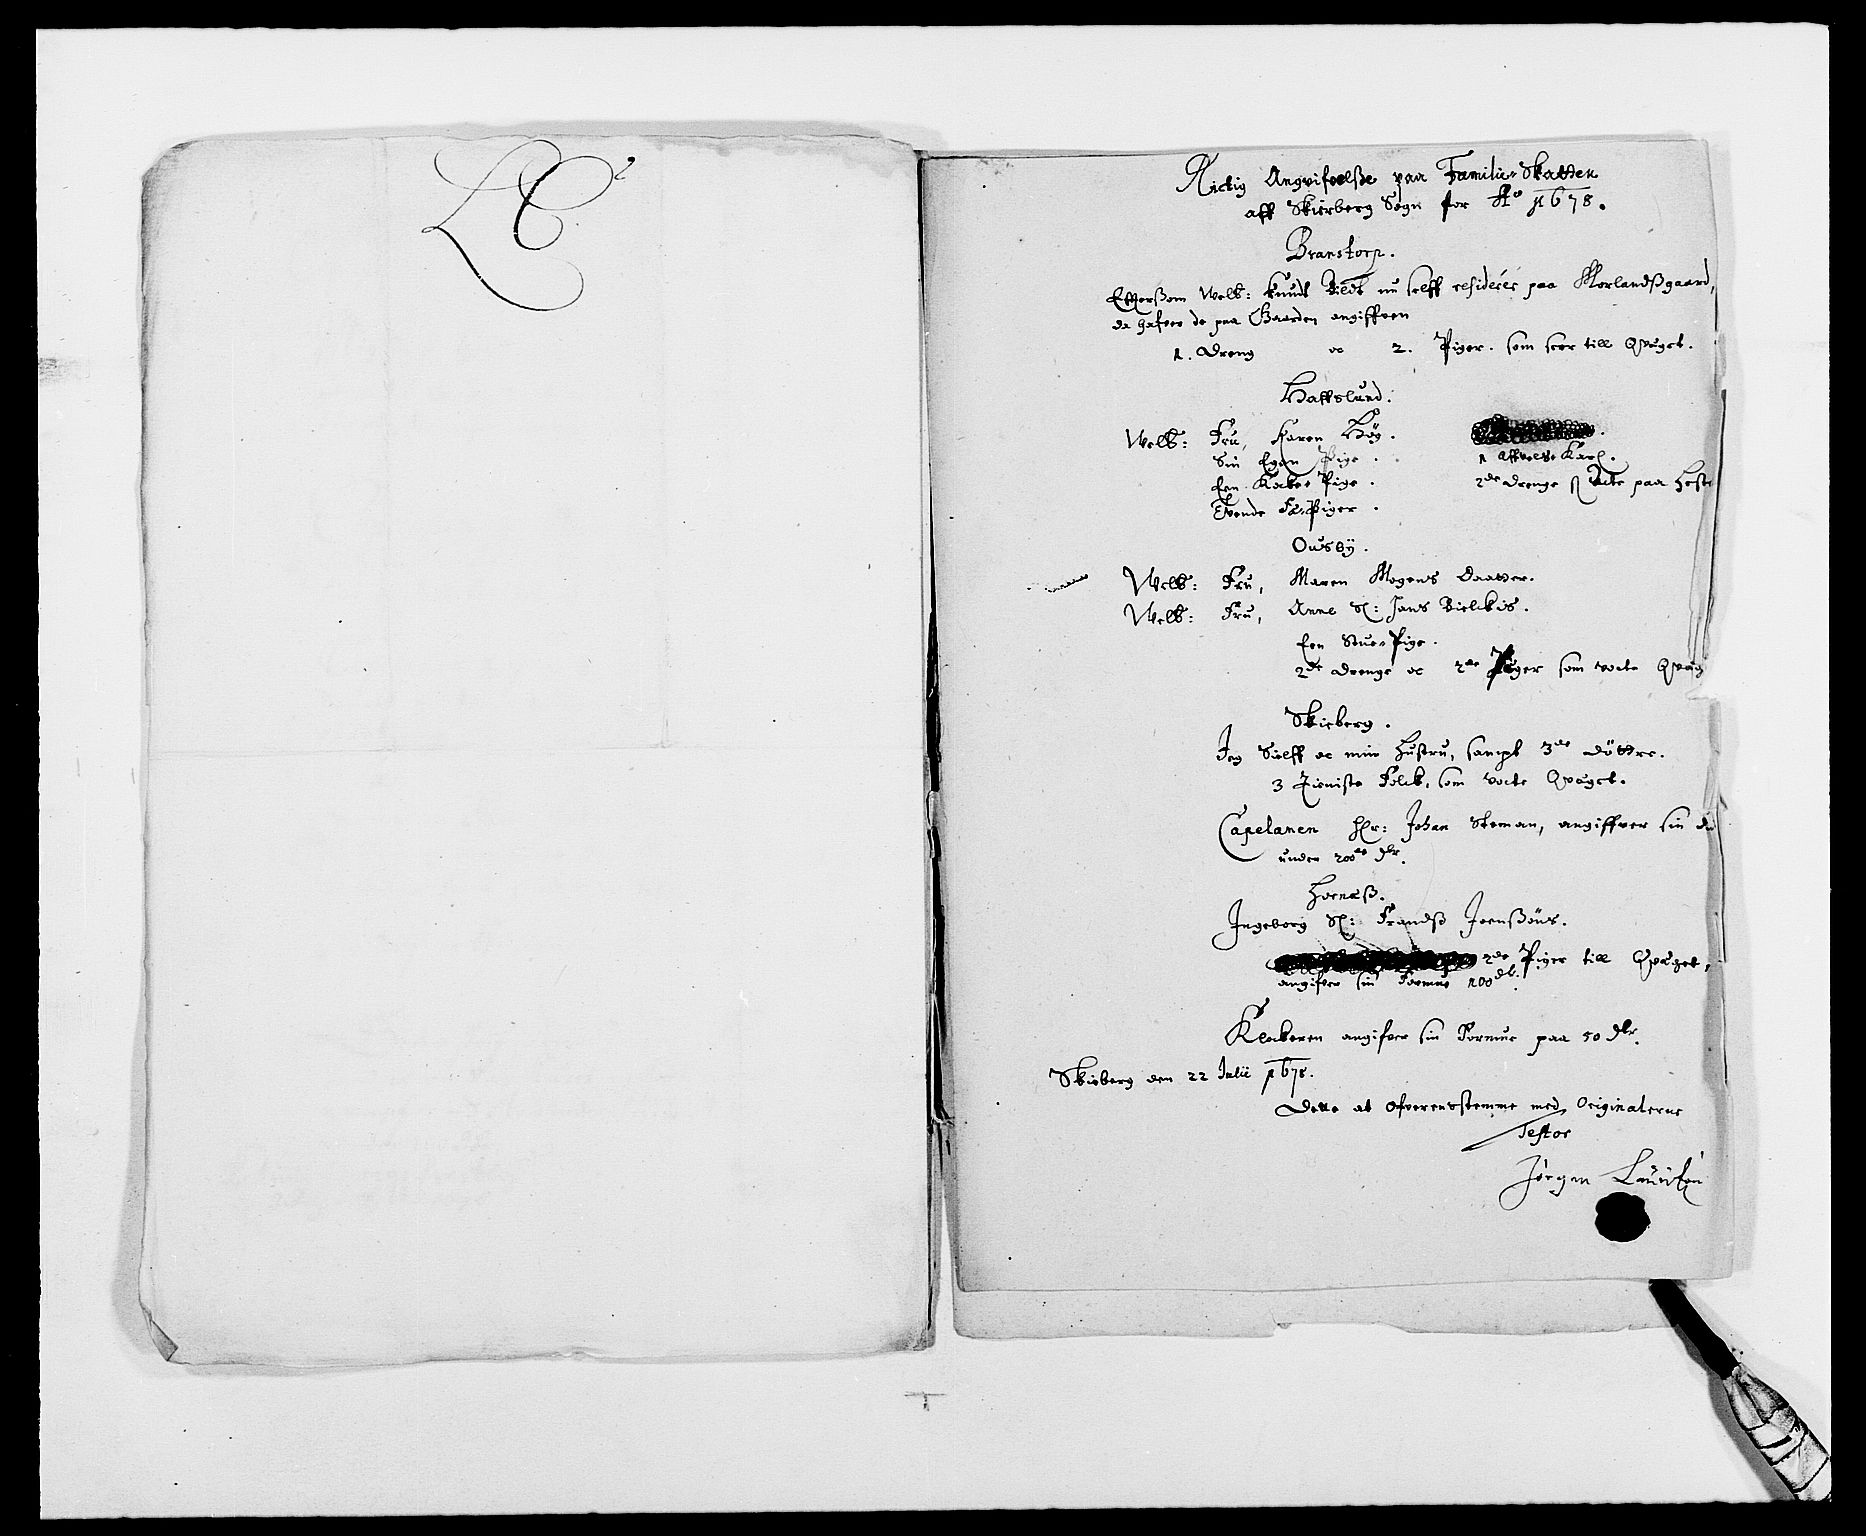 Rictig Angvifvelße paa Familie-Skatten
aff Skieberg Sogn for Ao 1678.
Branstorp.
Efftersom Welb: Knudt Bildt nu selff residerer paa Morlandßgaard,
da hafver de paa Gaarden angiffven
1. Dreng oc 2. Piger. som seer till Qvæget.
Haffslund.
Welb: Fru, Karen Høg.
Sin Egen Pige. 1 Affvels Karl.
Een Kocke Pige. 2de drenge
Tvende Fæ-Piger.
Ousbÿ.
Welb: Fru, Maren Mogens Daatter.
Welb: Fru, Anne Sl: Jens Bielckis.
Een Stue-Pige.
2de drenge oc 2de Piger som vocte Qvæg
Skieberg.
Jeg Sielff oc min Hustru, sampt 3de døttre.
3 Tieniste Folck, som vocte Qvæget.
Capelanen Hr: Johan Steman, angiffver sin
under 200de dlr.
Hornæß.
Ingeborg Sl: Frandß Joenßøns.
2de Piger till Qvæget,
angifver sin Formue 100 dl.
Klockeren angifver sin Formue paa 50 dlr.
Skieberg den 22 Julii 1678.
Dette at ofverensstemme med Originalerne
Testor
Jørgen Lauritzøn